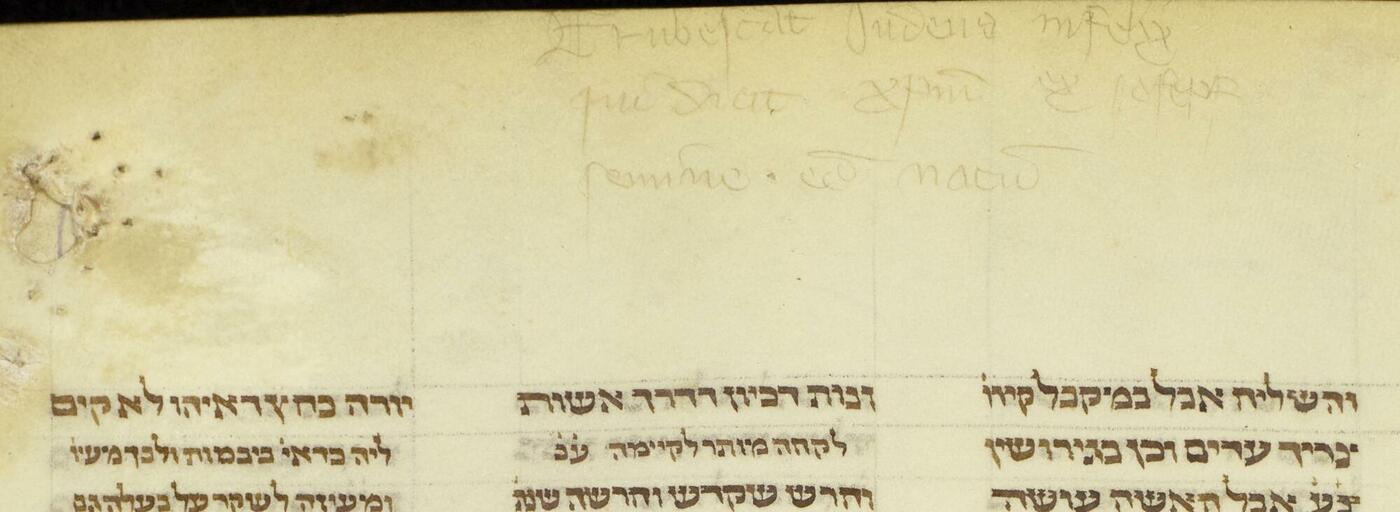 Erubescat Judeus infelix
qui dicit xpm ex Joseph
semine · eē natū
והשליח אבל במקבל קיוו
צריך עדים וכן בגירושין
אבל האשה עושה
וכות דכיון דדרך אשות
לקחה מותר לקיימה
והרש שקדש והרשה שנ
יורה כחץ דאיהו לא קים
ליה כדאי׳ ביבמות ולכך מעי׳
ומעיזה לשקר על בעלה גם